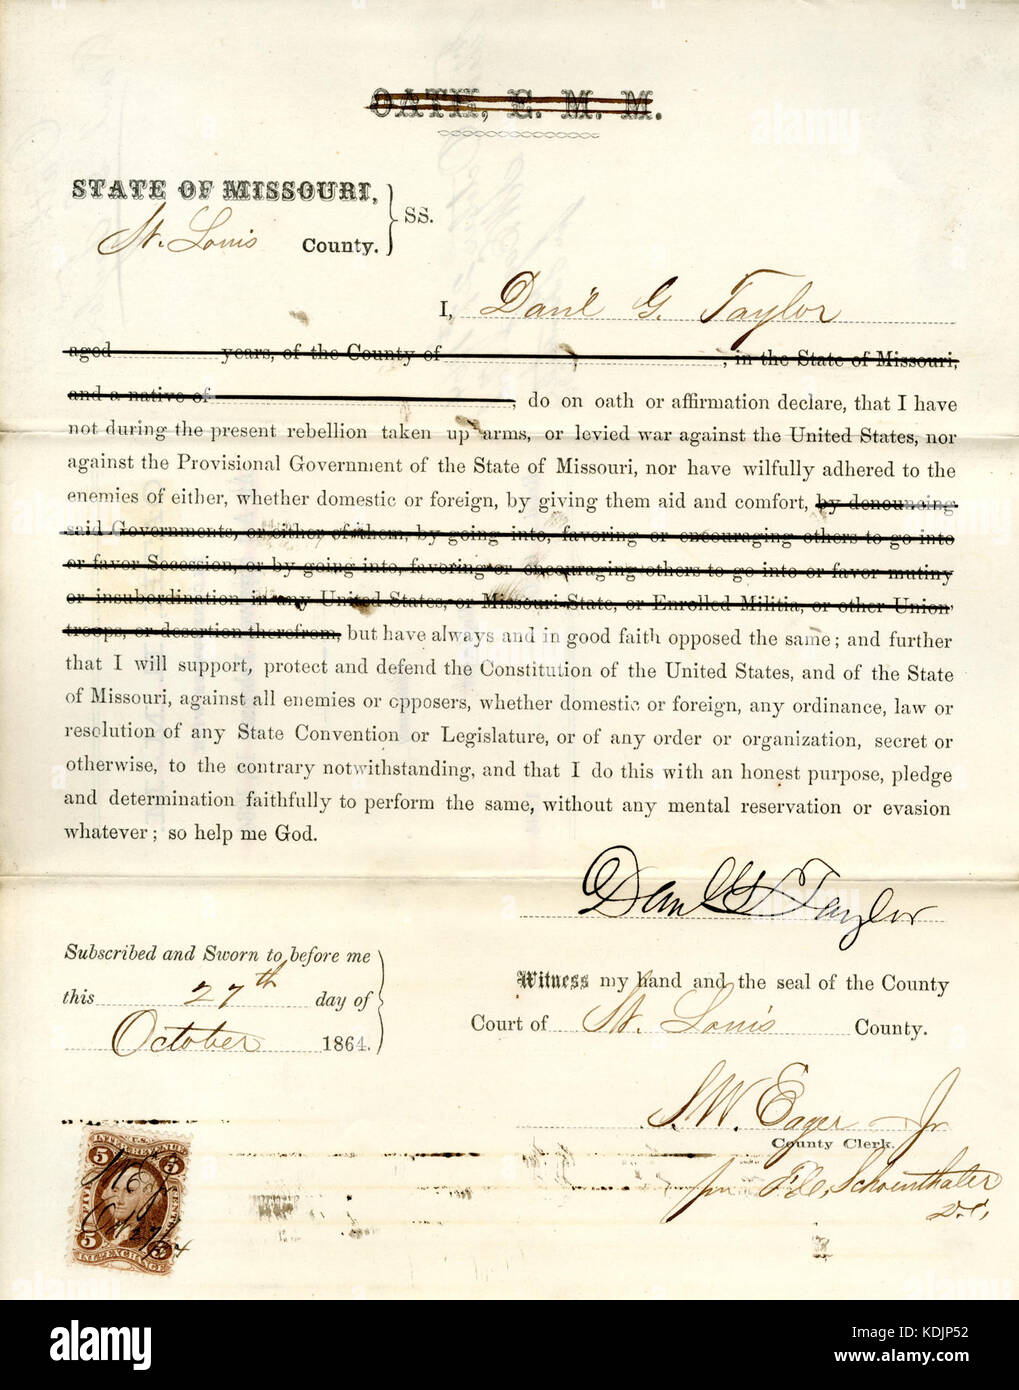 OATH, E. M. M.
STATE OF MISSOURI,
St. Louis County. } SS.
I, Dan'l G. Taylor
aged years, of the County of , in the State of Missouri,
and a native of , do on oath or affirmation declare, that I have
not during the present rebellion taken up arms, or levied war against the United States, nor
against the Provisional Government of the State of Missouri, nor have wilfully adhered to the
enemies of either, whether domestic or foreign, by giving them aid and comfort, by denouncing
said Governments, or either of them, by going into, favoring or encouraging others to go into
or favor Secession, or by going into, favoring or encouraging others to go into or favor mutiny
or insubordination in any United States, or Missouri State, or Enrolled Militia, or other Union
troops, or desertion therefrom, but have always and in good faith opposed the same; and further
that I will support, protect and defend the Constitution of the United States, and of the State
of Missouri, against all enemies or opposers, whether domestic or foreign, any ordinance, law or
resolution of any State Convention or Legislature, or of any order or organization, secret or
otherwise, to the contrary notwithstanding, and that I do this with an honest purpose, pledge
and determination faithfully to perform the same, without any mental reservation or evasion
whatever; so help me God.
Dan'l G Taylor
Subscribed and Sworn to before me
this 27th day of
October 1864.
Witness my hand and the seal of the County
Court of St. Louis County.
S. W. Eager Jr
County Clerk.
for Schoenthaler
D.C.
5 INTER. REVENUE 5
FIVE CENTS
Oct 27/64
5 INL. EXCHANGE 5
alamy
Image ID: KDJP52
www.alamy.com